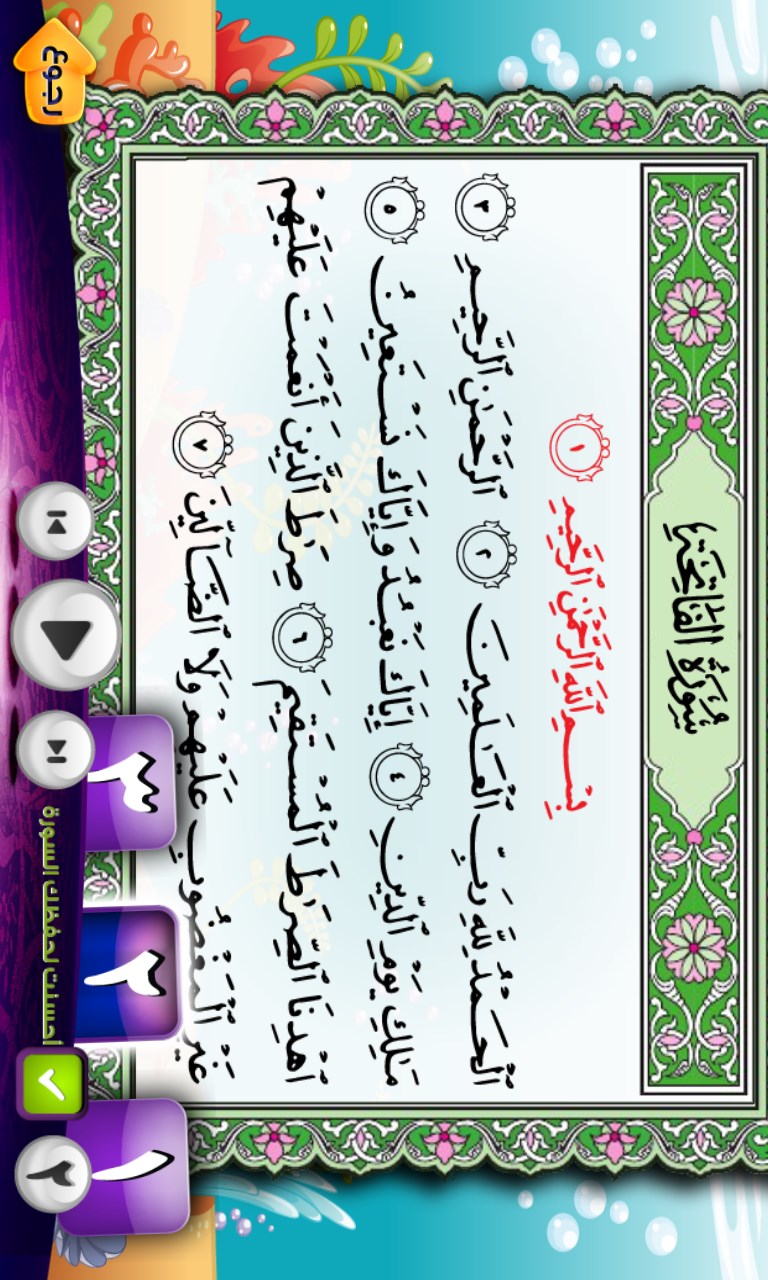 سُورَةُ الفَاتِحَةِ
بِسْمِ اللَّهِ الرَّحْمَٰنِ الرَّحِيمِ ١
ٱلْحَمْدُ لِلَّهِ رَبِّ ٱلْعَـٰلَمِينَ ٢ ٱلرَّحْمَـٰنِ ٱلرَّحِيمِ ٣
مَـٰلِكِ يَوْمِ ٱلدِّينِ ٤ إِيَّاكَ نَعْبُدُ وَإِيَّاكَ نَسْتَعِينُ ٥
ٱهْدِنَا ٱلصِّرَٰطَ ٱلْمُسْتَقِيمَ ٦ صِرَٰطَ ٱلَّذِينَ أَنْعَمْتَ عَلَيْهِمْ
غَيْرِ ٱلْمَغْضُوبِ عَلَيْهِمْ وَلَا ٱلضَّآلِّينَ ٧
١
٢
٣
٢
أحسنت لحفظك السورة
رجوع